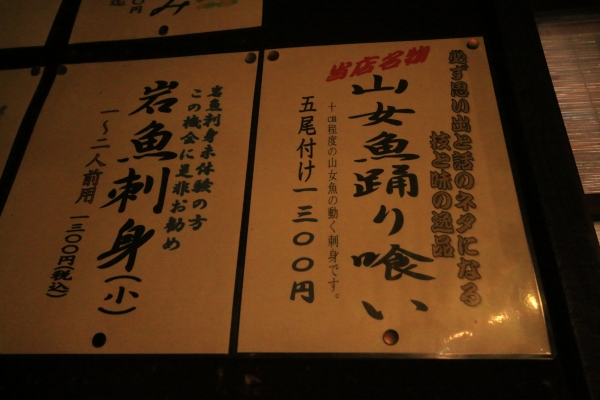 必ず思い出と話のネタになる
技と味の逸品
当店名物
山女魚踊り喰い
十㎝程度の山女魚の動く刺身です。
五尾付け一三〇〇円
岩魚刺身未体験の方
この機会に是非お勧め
岩魚刺身(小)
一〜二人前用 一三〇〇円(税込)
み
円